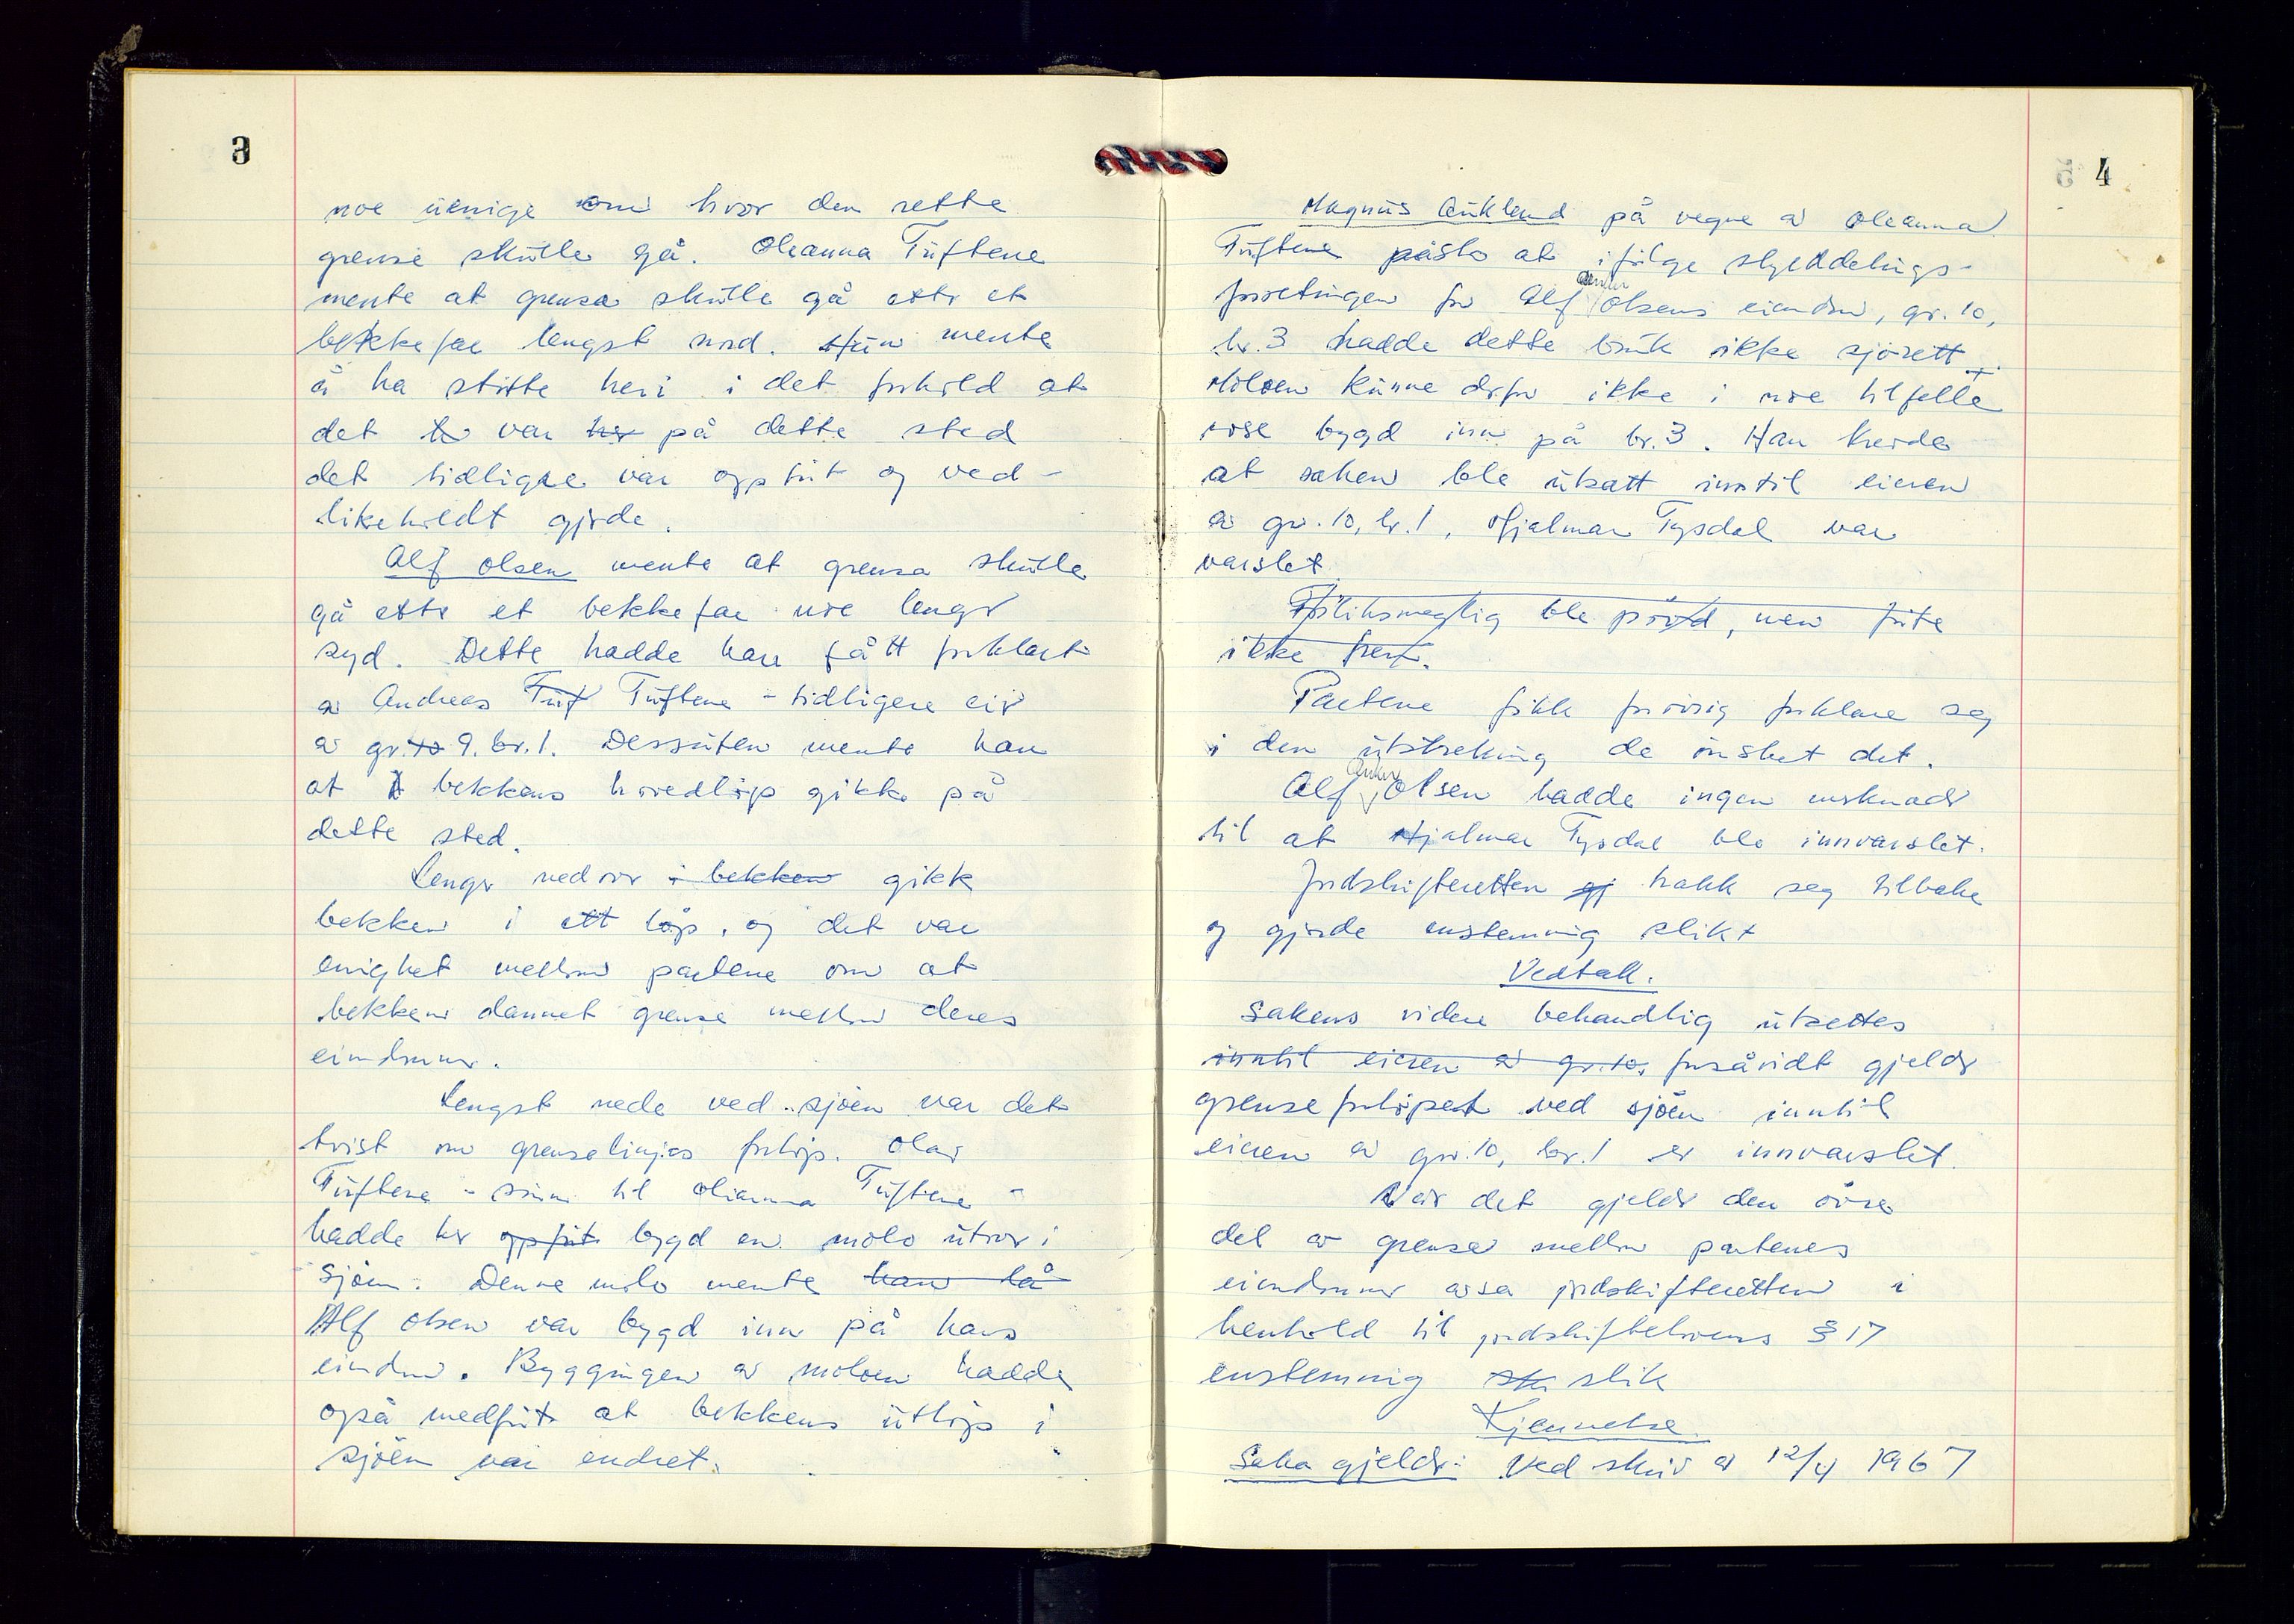 3
noe uenige om hvor den rette
grense skulle gå. Oleanna Tuftene
mente at grensa skulle gå etter et
bekkefar lengst nord. Hun mente
å ha støtte heri i det forhold at
det var her på dette sted
det tidligere var oppført og ved-
likeholdt gjerde.
Alf Olsen mente at grensa skulle
gå etter et bekkefar noe lenger
syd. Dette hadde han fått forklart
av Andreas Tuf Tuftene - tidligere eier
av gnr. 10 9. br. 1. Dessuten mente han
at bekkens hovedløp gikk på
dette sted.
Lenger nedover i bekken gikk
bekken i ett løp, og det var
enighet mellom partene om at
bekken dannet grense mellom deres
eiendommer.
Lengst nede ved sjøen var det
tvist om grenselinjas forløp. Olav
Tuftene - sønn til Oleanna Tuftene -
hadde her oppført bygd en molo utover i
sjøen. Denne molo mente han lå
Alf Olsen var bygd inn på hans
eiendom. Byggingen av moloen hadde
også medført at bekkens utløp i
sjøen var endret.
4
Magnus Aukland på vegne av Oleanna
Tuftene påsto at ifølge skylddelings-
forretningen for Alf Anker Olsens eiendom, gnr. 10,
br. 3 hadde dette bruk ikke sjørett.
Moloen kunne derfor ikke i noe tilfelle
være bygd inn på br. 3. Han krevde
at saken ble utsatt inntil eieren
av gnr. 10, br. 1, Hjalmar Tysdal var
varslet.
Forliksmegling ble prøvd, men førte
ikke frem.
Partene fikk forøvrig forklare seg
i den utstrekning de ønsket det.
Alf Anker Olsen hadde ingen merknader
til at Hjalmar Tysdal ble innvarslet.
Jordskifteretten gj trakk seg tilbake
og gjorde enstemmig slikt
Vedtak.
Sakens videre behandling utsettes
inntil eieren av gnr. 10, forsåvidt gjelder
grenseforløpet ved sjøen inntil
eieren av gnr. 10, br. 1 er innvarslet.
Når det gjelder den øvre
del av grensa mellom partenes
eiendommer avsa jordskifteretten i
henhold til jordskiftelovens § 17
enstemmig slik
Kjennelse.
Saka gjelder: Ved skriv av 12/4 1967